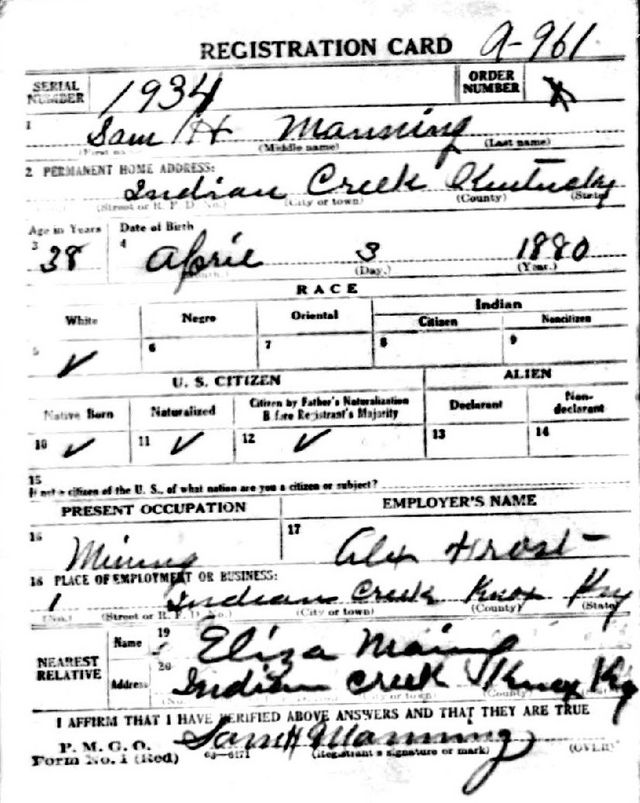 REGISTRATION CARD A-961
SERIAL NUMBER 1934 ORDER NUMBER
1 Sam H Manning
(Middle name) (Last name)
2 PERMANENT HOME ADDRESS:
Indian Creek Kentucky
(Street or R. F. D. No.) (City or town) (County) (State)
Age in Years Date of Birth
3 38 4 April 3 1880
(Day.) (Year.)
RACE
White Negro Oriental Indian
Citizen Noncitizen
5 ✓ 6 7 8 9
U. S. CITIZEN ALIEN
Native Born Naturalized Citizen by Father's Naturalization Before Registrant's Majority Declarant Non-declarant
10 ✓ 11 ✓ 12 ✓ 13 14
15
If not a citizen of the U. S., of what nation are you a citizen or subject?
PRESENT OCCUPATION EMPLOYER'S NAME
16 Mining 17 Alex
18 PLACE OF EMPLOYMENT OR BUSINESS:
1 Indian Creek Knox Ky
(No.) (Street or R. F. D. No.) (City or town) (County) (State)
NEAREST RELATIVE Name 19 Eliza
Address 20 Indian Creek Knox Ky
(No.) (City or town) (County)
I AFFIRM THAT I HAVE VERIFIED ABOVE ANSWERS AND THAT THEY ARE TRUE
P. M. G. O.
Form No. 1 (Red) 03-6171 Sam H Manning
(Registrant's signature or mark) (OVER)